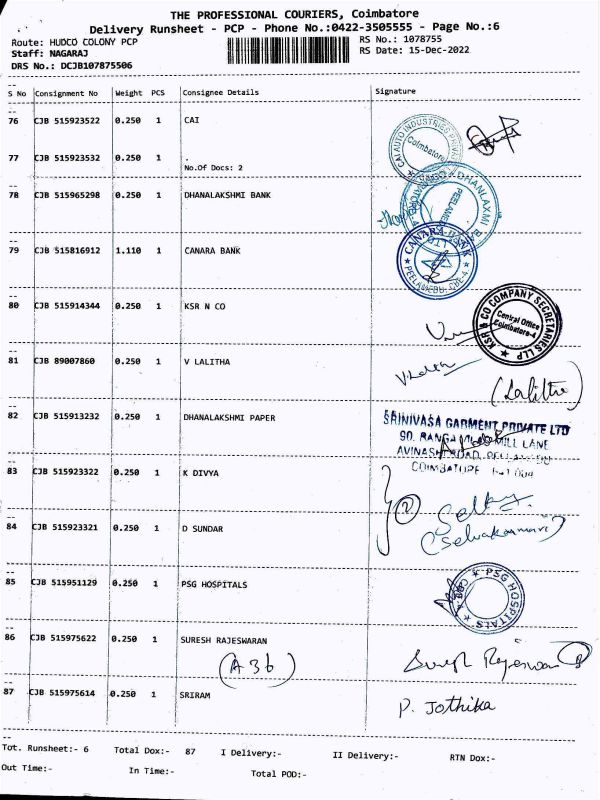 THE PROFESSIONAL COURIERS, Coimbatore
Delivery Runsheet - PCP - Phone No.:0422-3505555 - Page No.:6
Route: HUDCO COLONY PCP
RS No.: 1078755
Staff: NAGARAJ
RS Date: 15-Dec-2022
DRS No.: DCJB107875506
S No Consignment No Weight PCS Consignee Details Signature
76 CJB 515923522 0.250 1 CAI
CAI AUTO INDUSTRIES
Coimbatore
77 CJB 515923532 0.250 1 .
No.Of Docs: 2
78 CJB 515965298 0.250 1 DHANALAKSHMI BANK
DHANLAXMI
79 CJB 515816912 1.110 1 CANARA BANK
CANARA BANK
PEELAMEDU, CBE-4
80 CJB 515914344 0.250 1 KSR N CO
KSR & CO COMPANY SECRETARIES LLP
Central Office
Coimbatore-4
81 CJB 89007860 0.250 1 V LALITHA
(Lalitha)
82 CJB 515913232 0.250 1 DHANALAKSHMI PAPER
SRINIVASA GARMENT PRIVATE LTD
90, RANGA MILL LANE
AVINASHI ROAD,
COIMBATORE
83 CJB 515923322 0.250 1 K DIVYA
2
84 CJB 515923321 0.250 1 D SUNDAR
(Selvakumari)
85 CJB 515951129 0.250 1 PSG HOSPITALS
PSG HOSPITALS
86 CJB 515975622 0.250 1 SURESH RAJESWARAN
(A3b)
Suresh Rajeswaran
87 CJB 515975614 0.250 1 SRIRAM
P. Jothika
Tot. Runsheet:- 6 Total Dox:- 87 I Delivery:- II Delivery:- RTN Dox:-
Out Time:- In Time:- Total POD:-